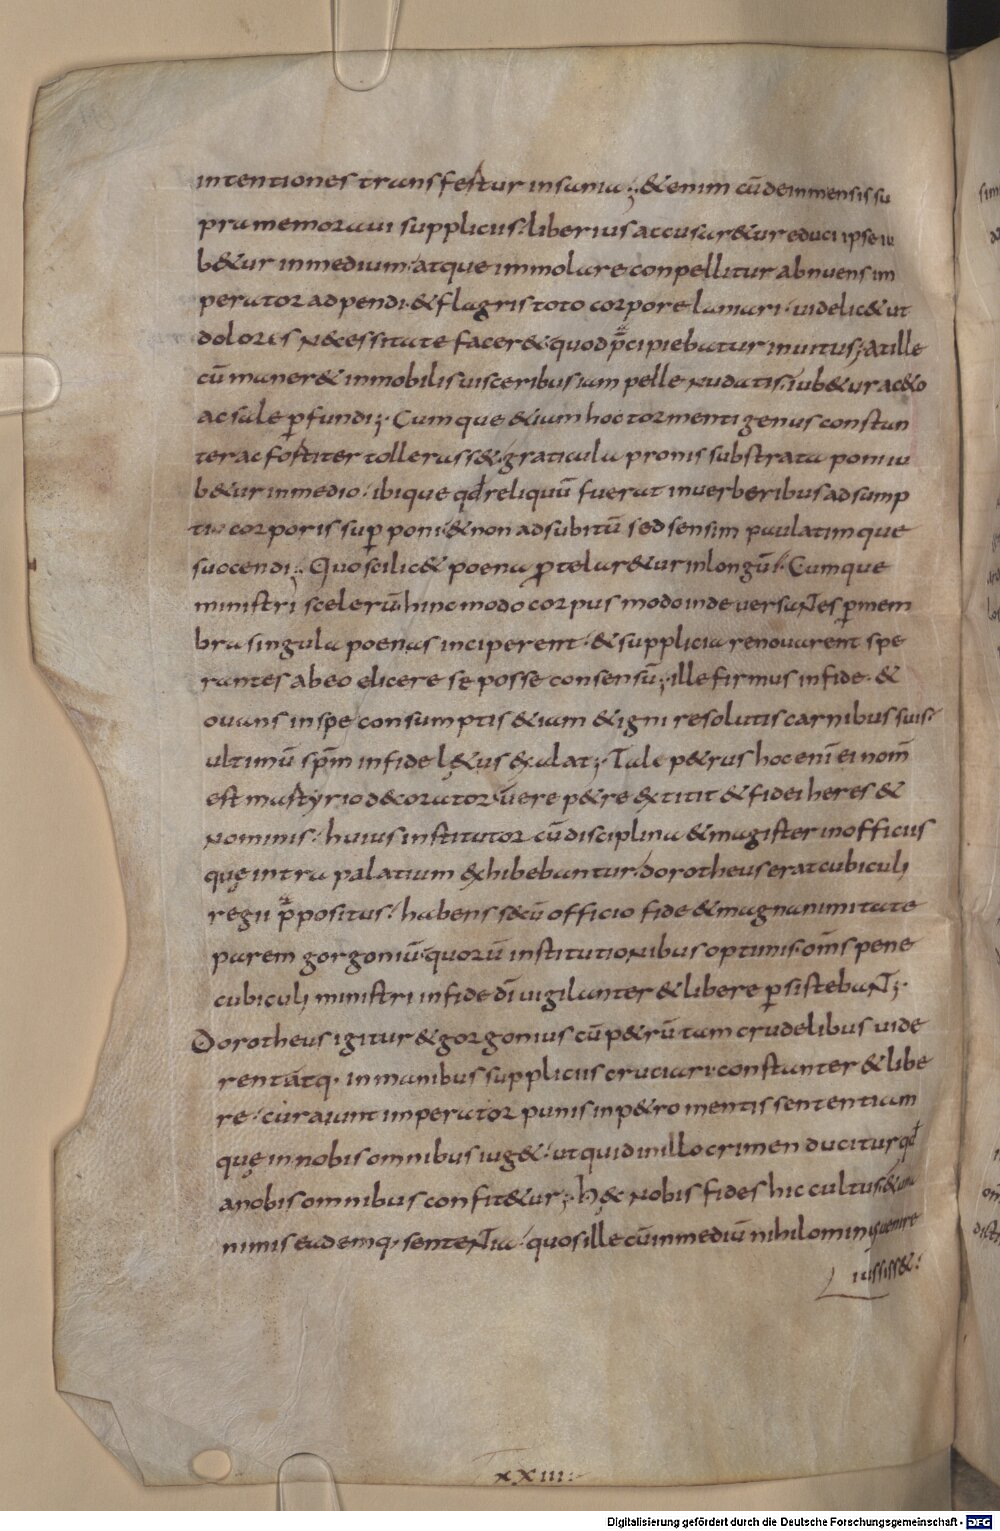 intentiones transfertur insania; &enim cū de inmensis su
pra memoraui suppliciis liberius accusar&ur educi ipse iu
b&ur in medium. atque immolare conpellitur abnuens im
perator adpendi. & flagris toto corpore laniari. uidelic& ut
doloris necessitate facer& quod p̄cipiebatur inuitus; at ille
cū maner& inmobilis uisceribus iam pelle nudatis. iub&ur ac&o
ac sale ꝑfundi;. Cumque &iam hoc tormenti genus constan
ter ac fortiter tollerass&. graticula prunis substrata poni iu
b&ur in medio. ibique qđ reliquū fuerat in uerberibus adsump
ti corporis suꝑ poni. & non ad subitū sed sensim paulatimque
succendi;. Quo scilic& poena ꝓtelar&ur in longū. Cumque
ministri scelerū. hinc modo corpus modo inde uersantes ꝑ mem
bra singula poenas inciperent. & supplicia renouarent spe
rantes ab eo elicere se posse consensū; ille firmus in fide. &
ouans in spe consumptis &iam & igni resolutis carnibus suis.
ultimū sp̄m in fide lę&us exalat;. Tale p&rus hoc enī ei nom̄
est martyrio decorator. uere p&re extitit & fidei heres &
nominis. huius institutor cū disciplina & magister in officiis
quę intra palatium exhibebantur. dorotheus erat cubiculi
regii p̄positus. habens secū officio fide & magnanimitate
parem gorgoniū. quorū institutionibus optimis. om̄s pene
cubiculi ministri in fide dī uigilanter & libere ꝑsistebant;.
Dorotheus igitur & gorgonius cū p&rū tam crudelibus uide
rent atq. inmanibus suppliciis cruciari. constanter & libe
re. cur aiunt imperator punis in p&ro mentis sententiam
quę in nobis omnibus uig&. ut quid in illo crimen ducitur qđ
a nobis omnibus confit&ur;. hęc nobis fides hic cultus. & una
nimis eademq. sententia. quos ille cū in medium nihilominus uenire
iussiss&.
XXIII.
Digitalisierung gefördert durch die Deutsche Forschungsgemeinschaft - DFG